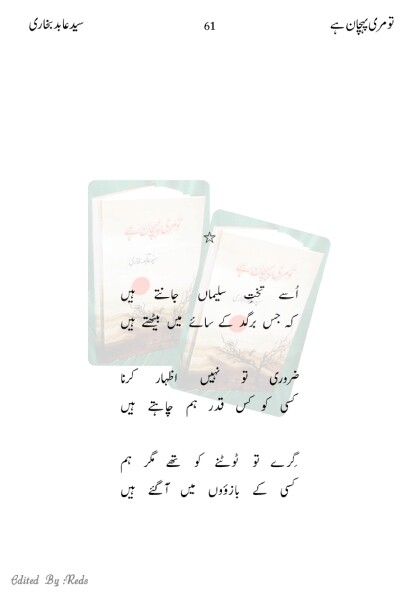 تو مری پہچان ہے 61 سید عابد بخاری
☆
اُسے تختِ سلیماں جانتے ہیں
کہ جس برگد کے سائے میں بیٹھتے ہیں
ضروری تو نہیں اظہار کرنا
کسی کو کس قدر ہم چاہتے ہیں
گرے تو ٹوٹنے کو تھے مگر ہم
کسی کے بازوؤں میں آ گئے ہیں
Edited By :Reds